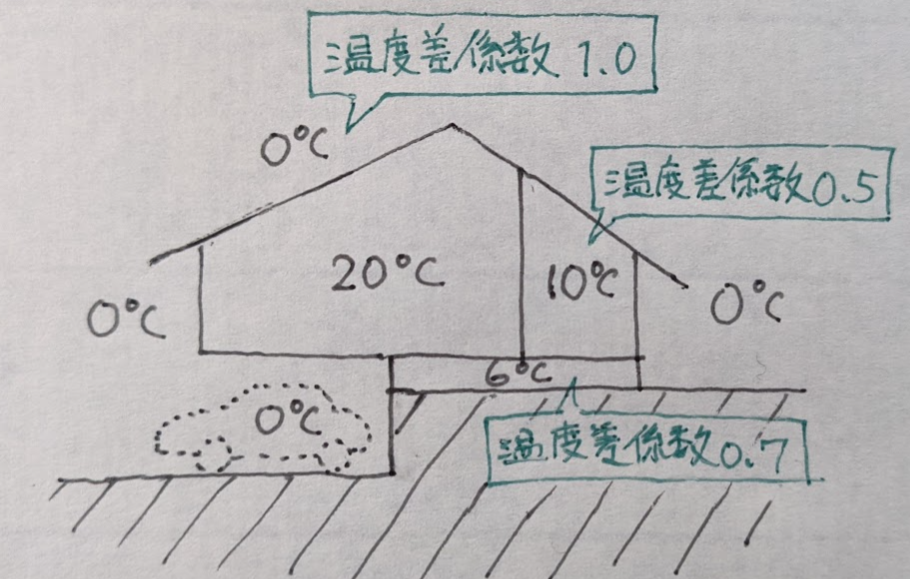 温度差係数 1.0
0℃
温度差係数0.5
20℃
10℃
0℃
0℃
6℃
0℃
温度差係数0.7